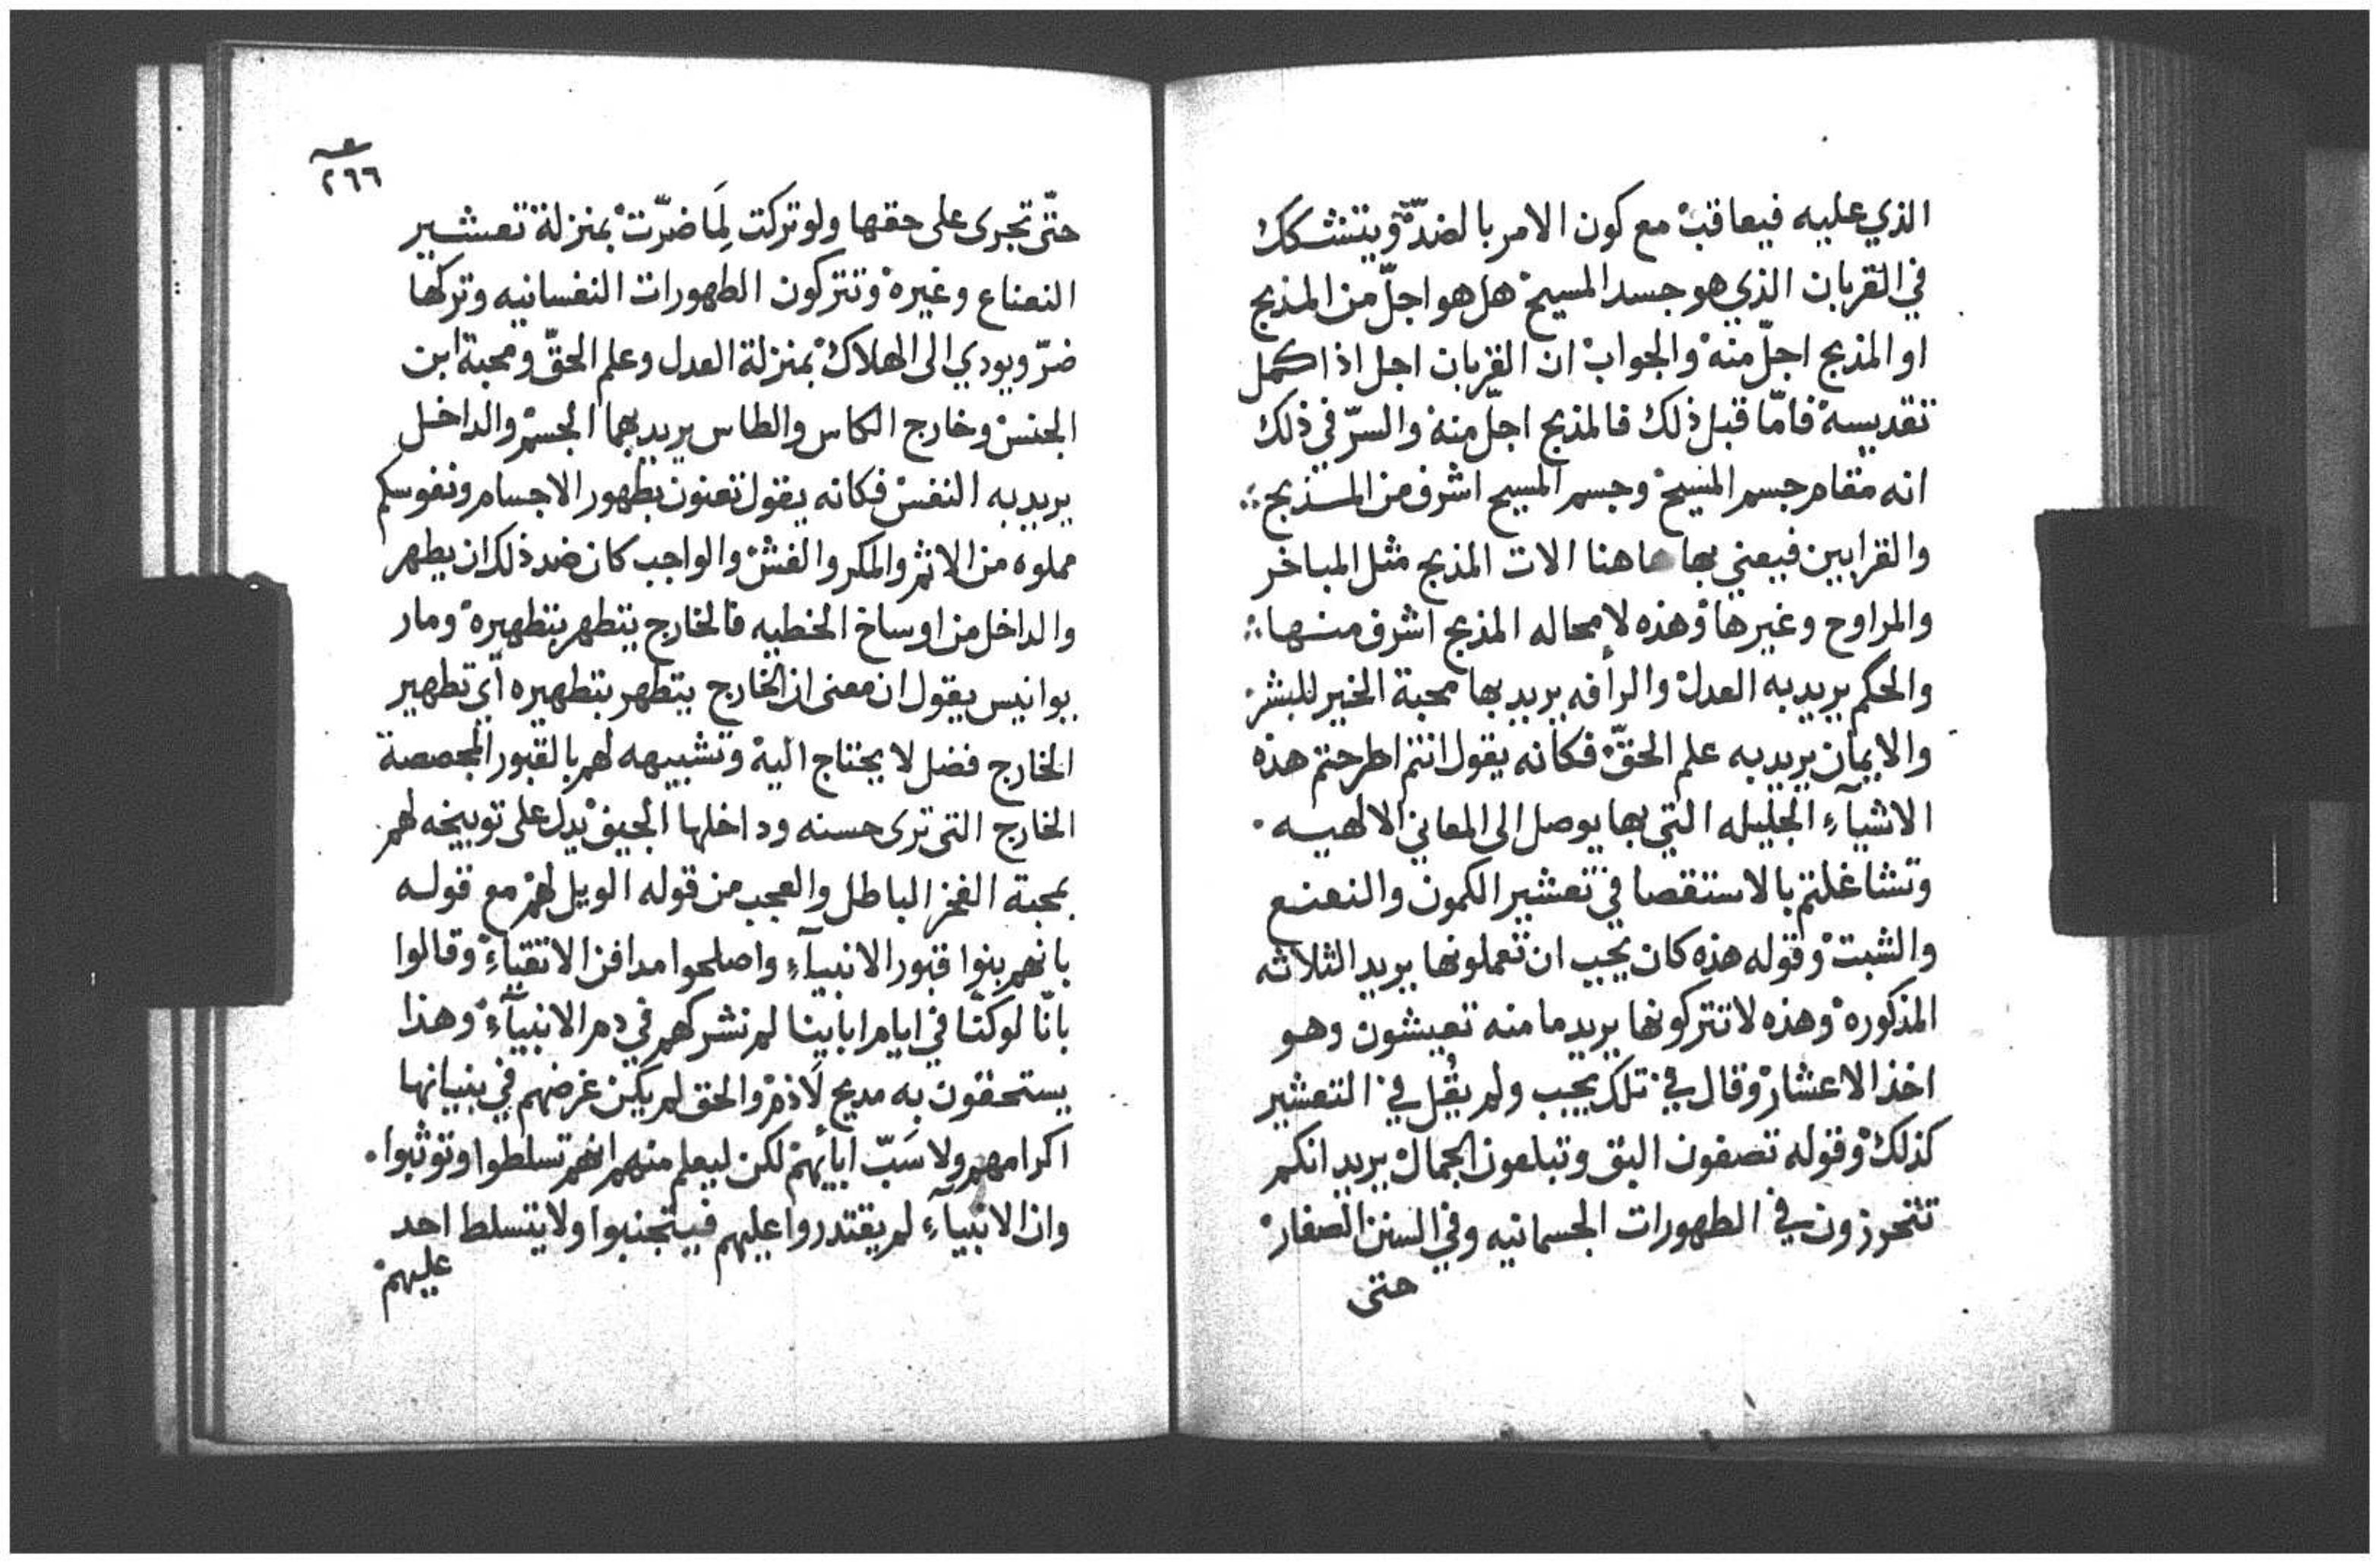 الذي عليه فيعاقب مع كون الامر بالضدّ ويتشكك
في القربان الذي هو جسد المسيح هل هو اجلّ من المذبح
او المذبح اجلّ منه والجواب ان القربان اجل اذا كمل
تقديسة فامّا قبل ذلك فالمذبح اجلّ منه والسرّ في ذلك
انه مقام جسم المسيح وجسم المسيح اشرف من المذبح
والقرابين فيعني بها هاهنا الات المذبح مثل المباخر
والمراوح وغيرها وهذه لا محاله المذبح اشرف منها
والحكم يريد به العدل والرأفه يريد بها محبة الخير للبشر
والايمان يريد به علم الحقّ فكانه يقول انتم اطرحتم هذه
الاشيآءِ الجليله التي بها يوصل الى المعاني الالهيه
وتشاغلتم بالاستقصا في تعشير الكمون والنعنع
والشبت وقوله هذه كان يجب ان تعملونها يريد الثلاثه
المذكوره وهذه لا تتركونها يريد ما منه تعيشون وهو
اخذ الاعشار وقال في تلك يجب ولم يقُل في التعشير
كذلك وقوله تصفون البق وتبلعون الجمال يريد انكم
تتحرزون في الطهورات الجسمانيه وفي السنن الصغار
حتى
٢٦٦
حتّى تجرى على حقها ولو تركت لَمَا ضرّت بمنزلة تعشير
النعناع وغيره وتتركون الطهورات النفسانيه وتركها
ضرّ ويودي الى الهلاك بمنزلة العدل وعلم الحقّ ومحبة ابن
الجنس وخارج الكاس والطاس يريد بهما الجسم والداخل
يريد به النفس فكانه يقول تعنون بطهور الاجسام ونفوسكم
مملوه من الاثم والمكر والغش والواجب كان ضد ذلك ان يطهر
والداخل من اوساخ الخطيه فالخارج يتطهر بتطهيره ومار
يوانيس يقول ان معنى ان الخارج يتطهر بتطهيره أي تطهير
الخارج فضل لا يحتاج الية وتشبيهه لهم بالقبور المجصصة
الخارج التى ترى حسنه وداخلها الجيف يدل على توبيخه لهم
بمحبة الفخر الباطل والعجب من قوله الويل لهم مع قوله
بانهم بنوا قبور الانبيآءِ واصلحوا مدافن الاتقيآءِ وقالوا
بانّا لو كنّا في ايام اباينا لم نشركهم في دم الانبيآءِ وهذا
يستحقون به مديح لَا ذم والحق لم يكن غرضهم في بنيانها
اكرامهم ولا سَبّ ابائهم لكن ليعلم منهم انهم تسلطوا وتوثبوا
وان الانبيآءِ لم يقتدروا عليهم فيتجنبوا ولا يتسلط احد
عليهم